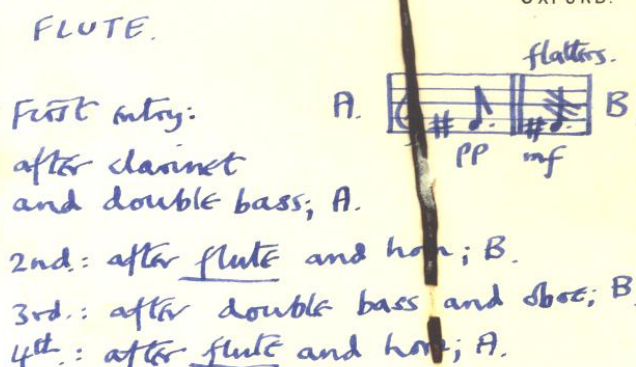 OXFORD.
FLUTE.
flatters.
First entry: A. B
pp mf
after clarinet
and double bass; A.
2nd.: after flute and horn; B.
3rd.: after double bass and oboe; B.
4th.: after flute and horn; A.